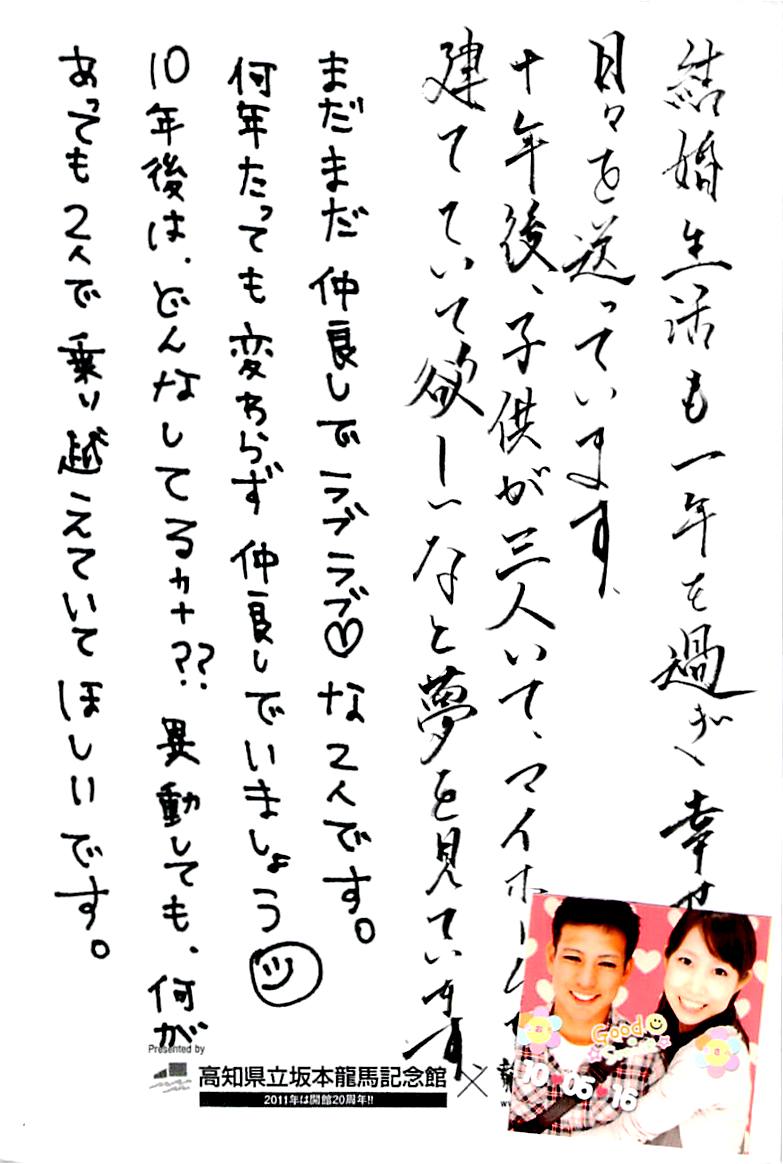 結婚生活も一年を過ぎ幸せ
日々を送っています、
十年後、子供が三人いて、マイホーム
建てていて欲しいなと夢を見ています
まだまだ仲良しでラブラブ♡な2人です。
何年たっても変わらず仲良しでいましょう
10年後は、どんなしてるカナ??異動しても、何が
あっても2人で乗り越えていてほしいです。
Presented by
高知県立坂本龍馬記念館
2011年は開館20周年!!
Good
10 05 16